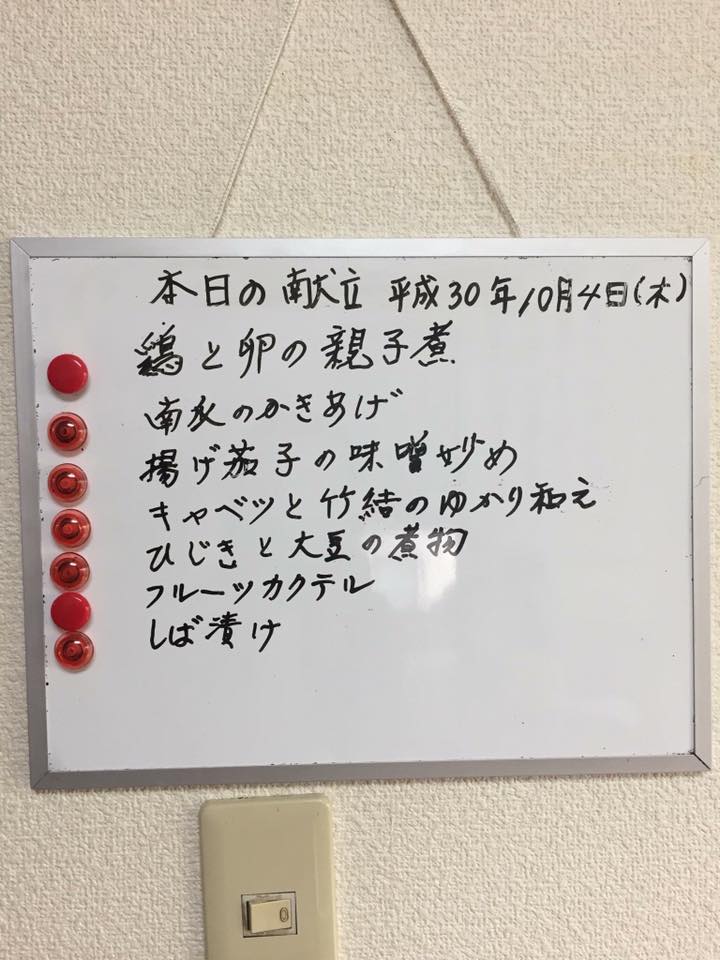 本日の献立 平成30年10月4日(木)
鶏と卵の親子煮
南瓜のかきあげ
揚げ茄子の味噌炒め
キャベツと竹結のゆかり和え
ひじきと大豆の煮物
フルーツカクテル
しば漬け